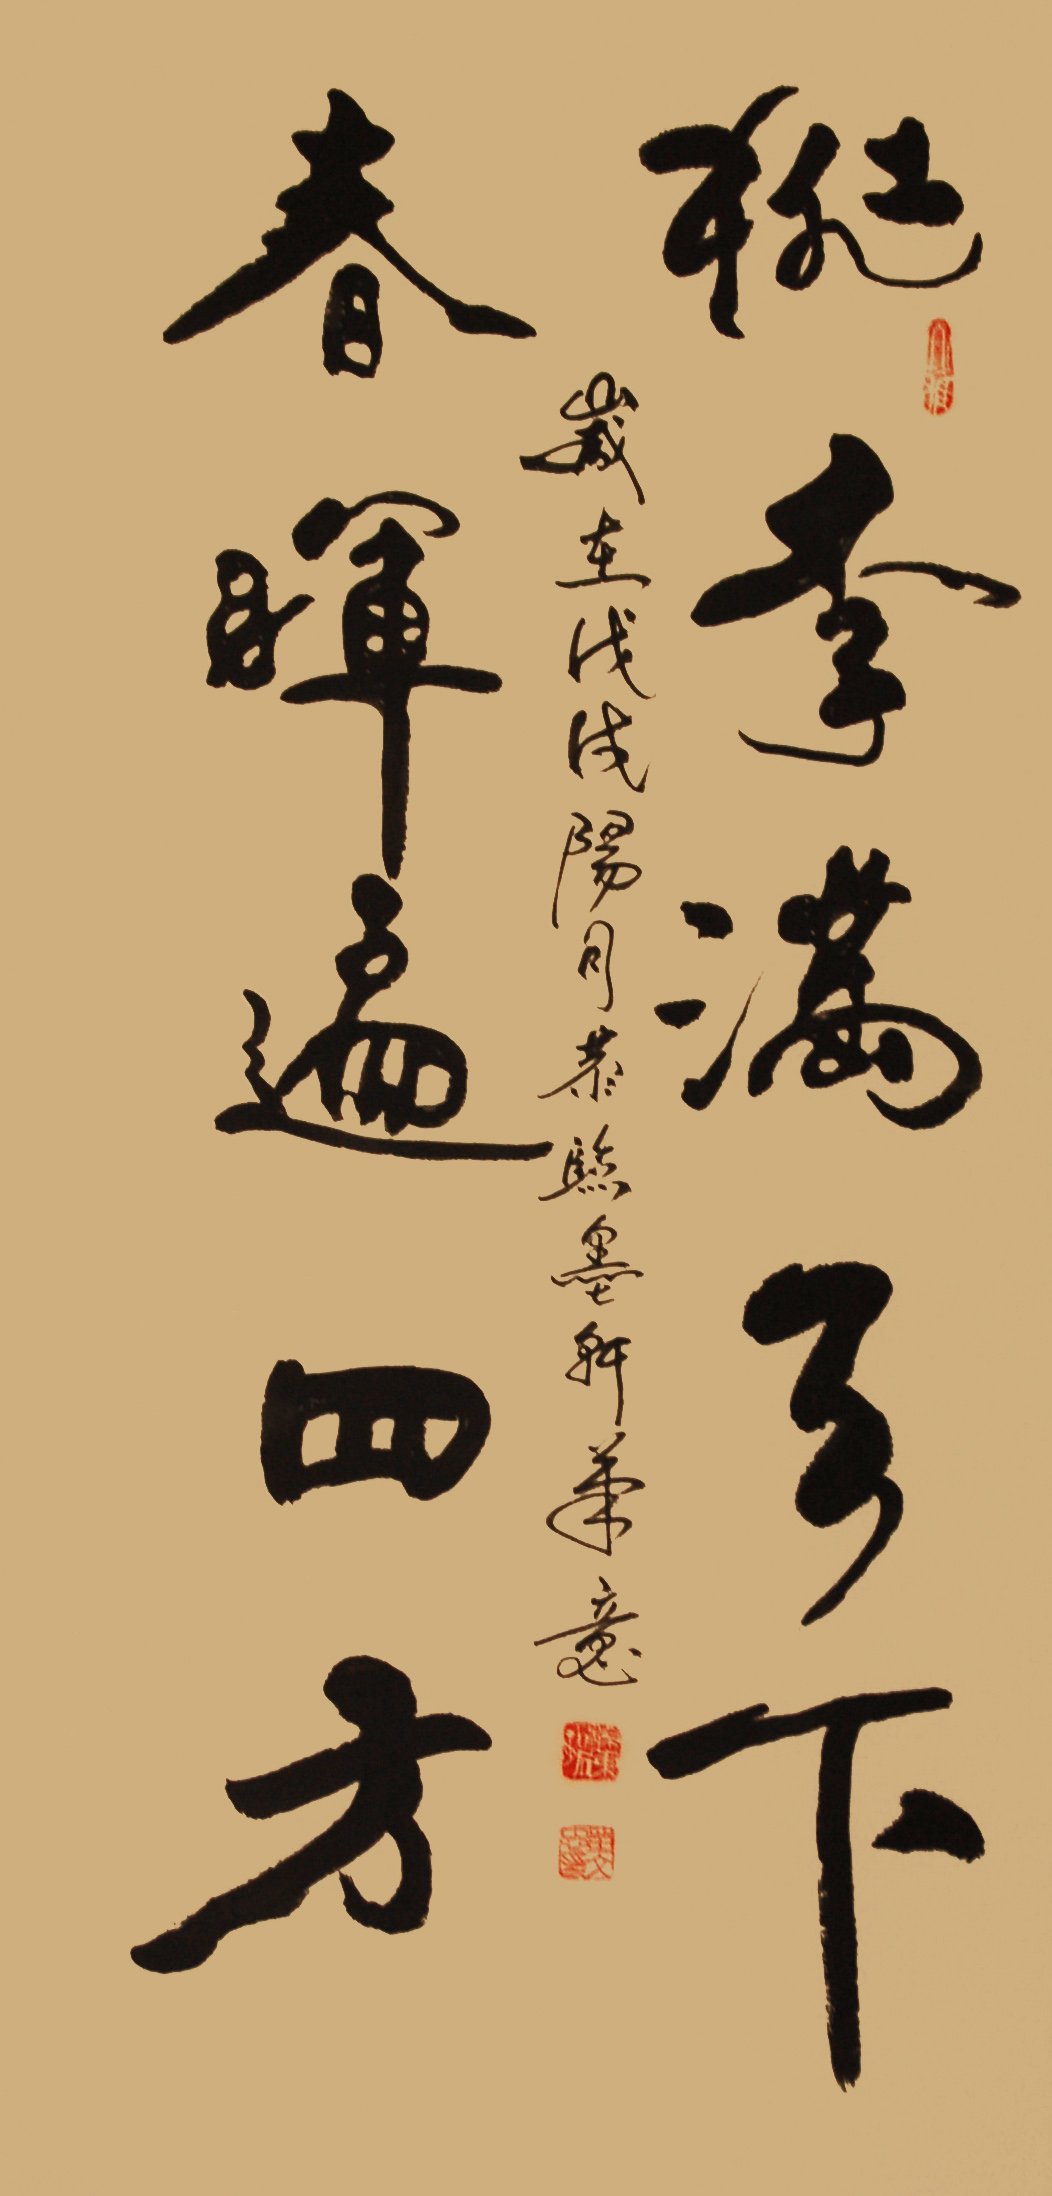 桃李滿天下
歲在戊戌陽月恭臨墨軒筆意
春暉遍四方